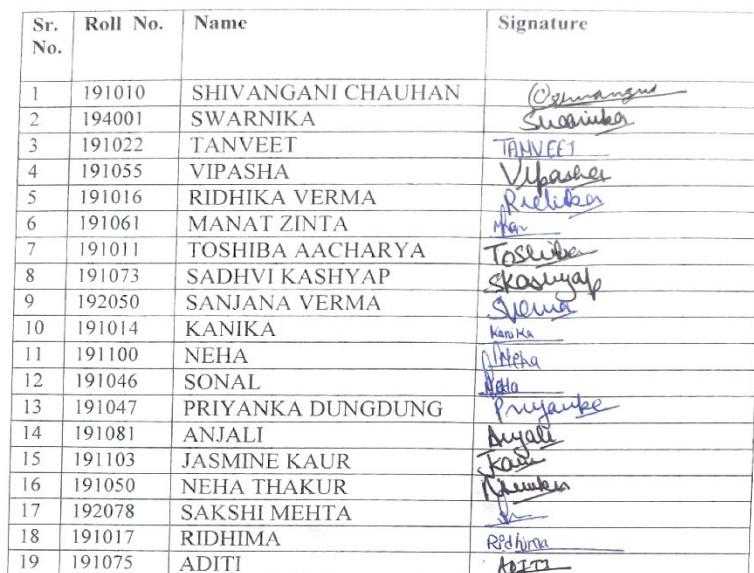 Sr. No. Roll No. Name Signature
1 191010 SHIVANGANI CHAUHAN
2 194001 SWARNIKA Swarnika
3 191022 TANVEET TANVEET
4 191055 VIPASHA Vipasha
5 191016 RIDHIKA VERMA
6 191061 MANAT ZINTA
7 191011 TOSHIBA AACHARYA Toshiba
8 191073 SADHVI KASHYAP SKashyap
9 192050 SANJANA VERMA SVerma
10 191014 KANIKA Kanika
11 191100 NEHA Neha
12 191046 SONAL
13 191047 PRIYANKA DUNGDUNG Priyanka
14 191081 ANJALI Anjali
15 191103 JASMINE KAUR Kaur
16 191050 NEHA THAKUR
17 192078 SAKSHI MEHTA
18 191017 RIDHIMA Ridhima
19 191075 ADITI ADITI